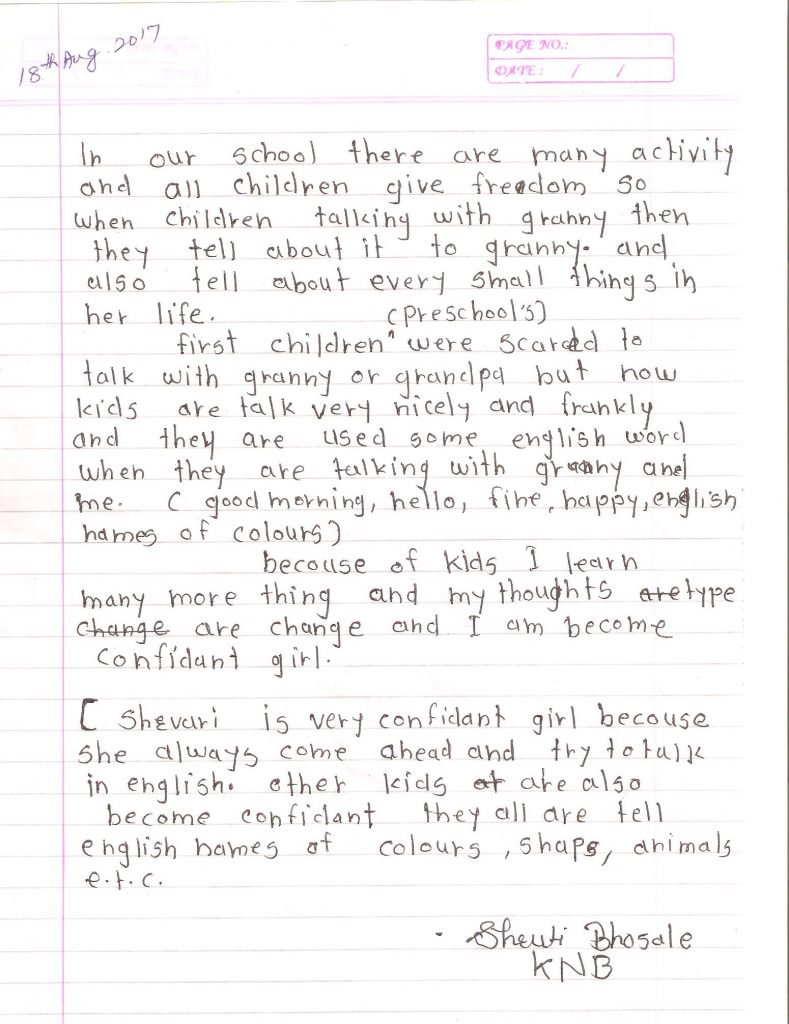 18th Aug. 2017
PAGE NO.:
DATE: / /
In our school there are many activity
and all children give freedom so
when children talking with granny then
they tell about it to granny. and
also tell about every small things in
her life. (preschool's)
first children ^ were scared to
talk with granny or grandpa but now
kids are talk very nicely and frankly
and they are used some english word
when they are talking with granny and
me. ( good morning, hello, fine, happy, english
names of colours)
becouse of kids I learn
many more thing and my thoughts are type
change are change and I am become
confidant girl.
[ Shevari is very confidant girl becouse
she always come ahead and try to talk
in english. other kids at are also
become confidant they all are tell
english names of colours , shaps, animals
e.t.c.
Bhosale
KNB